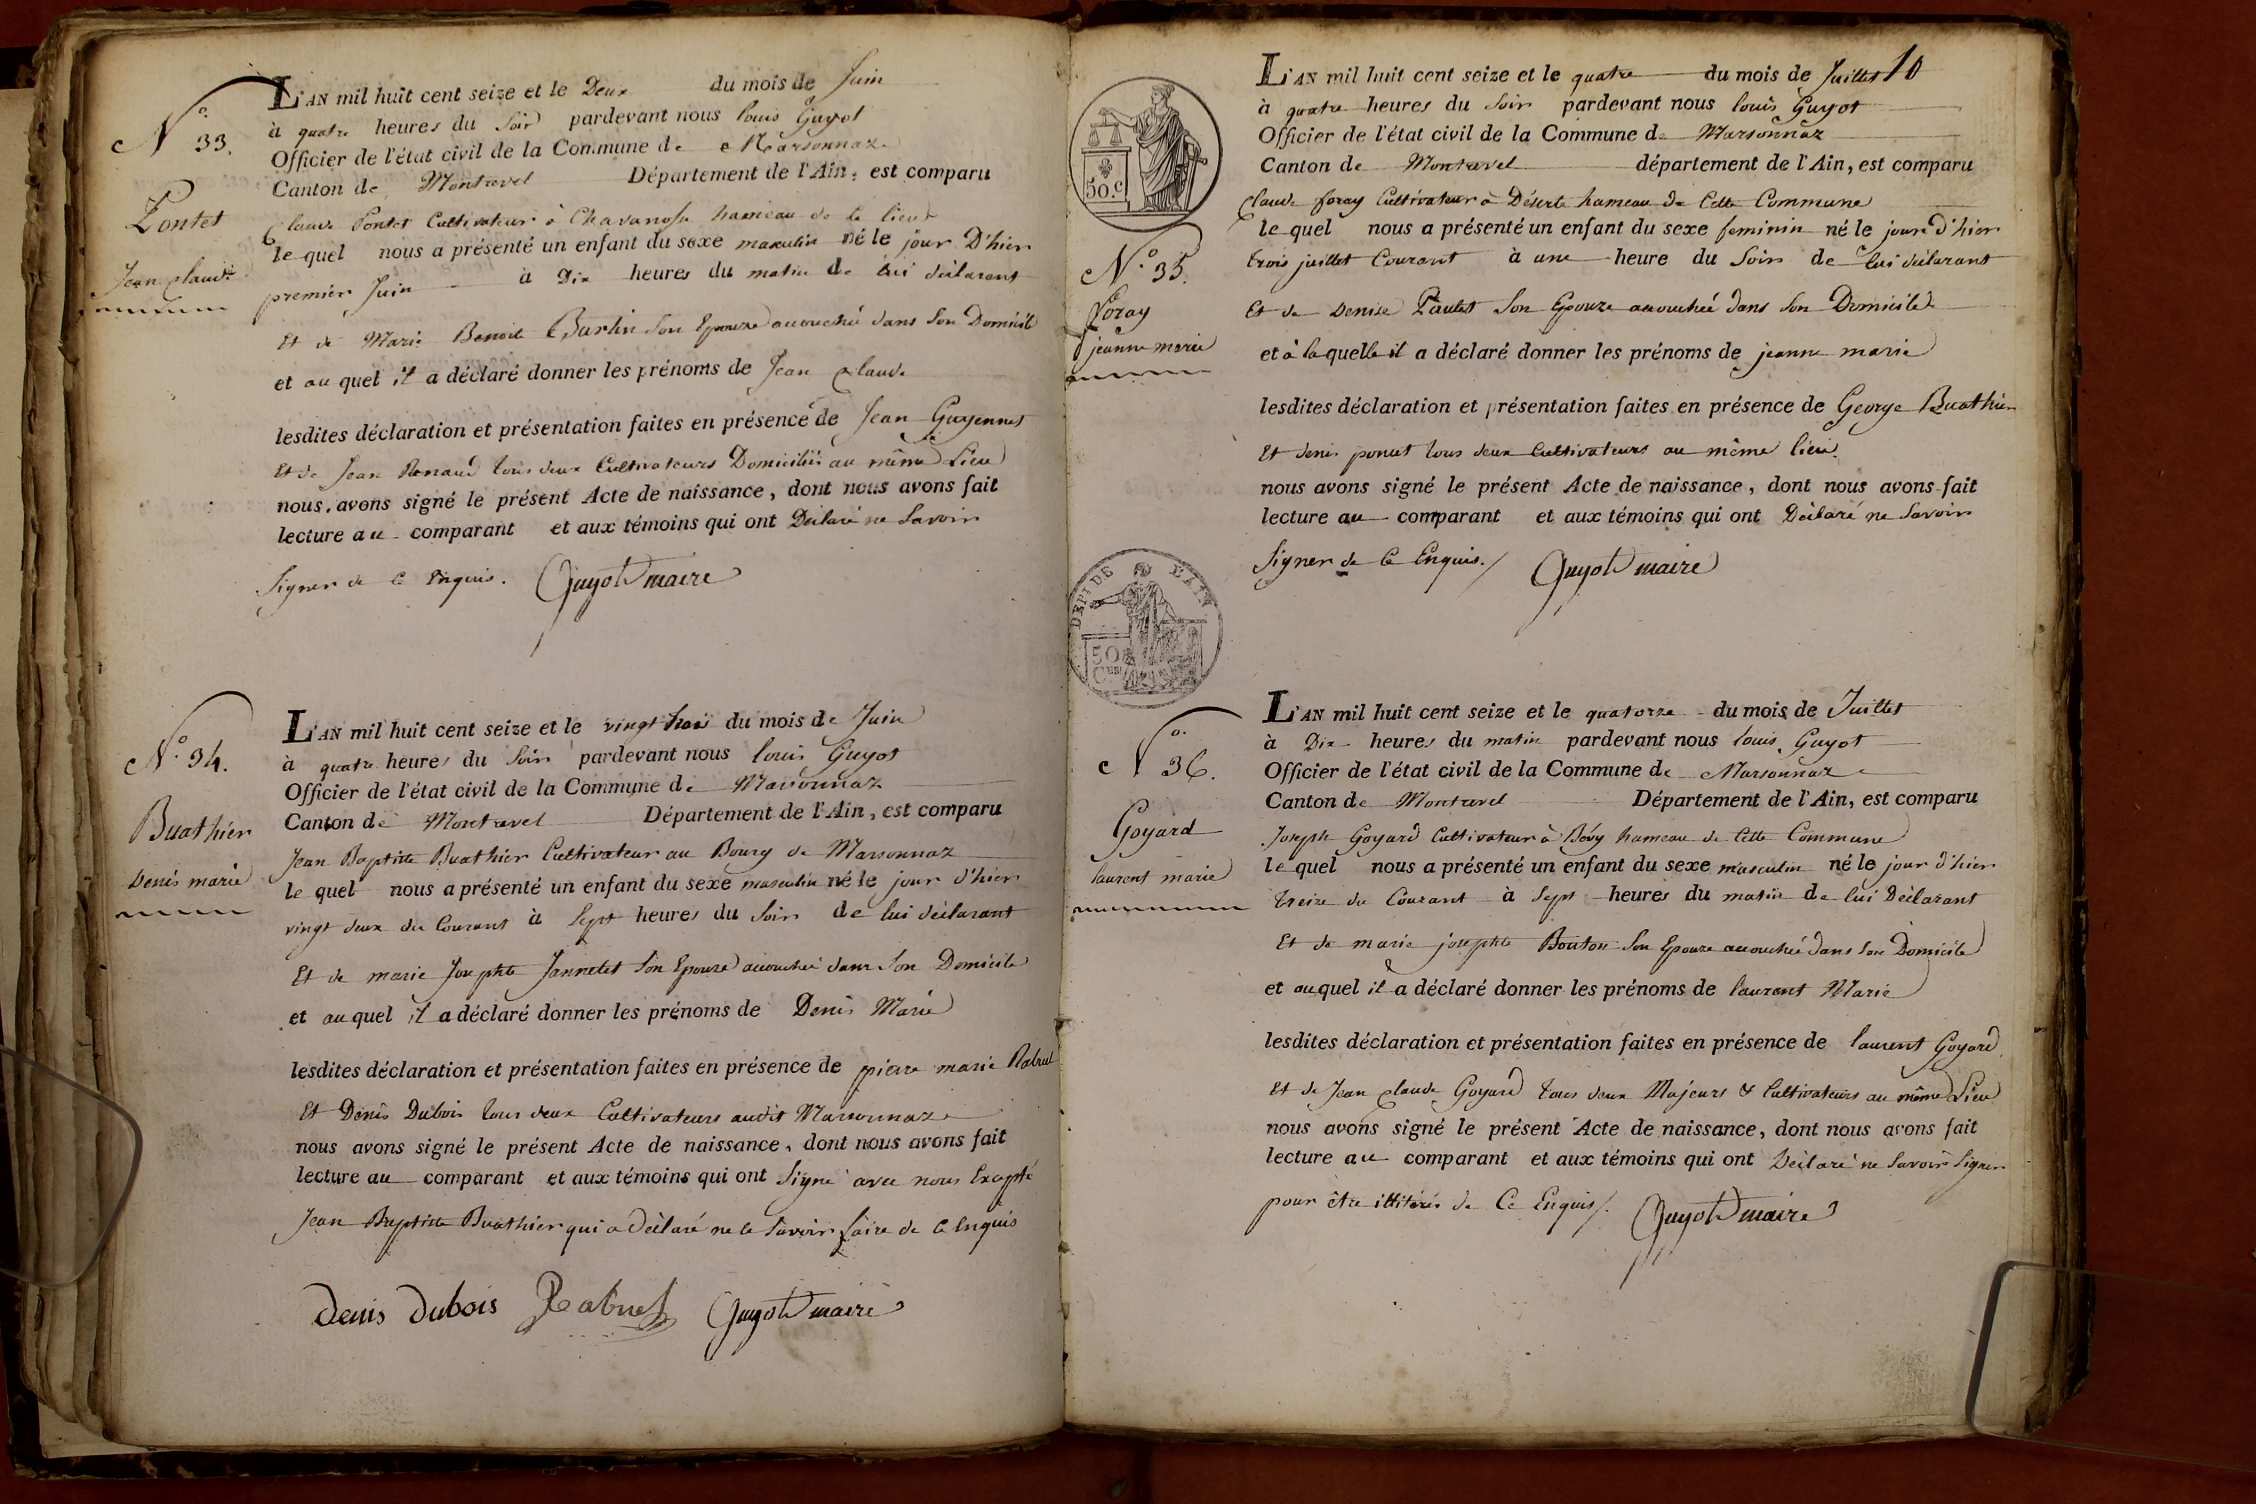 N.° 33.
Pontet
Jean Claude
L'AN mil huit cent seize et le Deux du mois de Juin
à quatre heures du Soir pardevant nous louis Guyot
Officier de l'état civil de la Commune de Marsonnaz
Canton de Montrevel Département de l'Ain, est comparu
Claude Pontet Cultivateur à Chavanosse hameau de ce lieu
le quel nous a présenté un enfant du sexe masculin né le jour D'hier
premier Juin à Dix heures du matin de lui déclarant
Et de Marie Benoite Burtin Son Epouze accouchée dans Son Domicile
et au quel il a déclaré donner les prénoms de Jean Claude
lesdites déclaration et présentation faites en présence de Jean Guyennet
Et de Jean Renaud tous deux Cultivateurs Domiciliés au même Lieu
nous avons signé le présent Acte de naissance, dont nous avons fait
lecture au comparant et aux témoins qui ont Déclaré ne Savoir
Signer de ce Enquis. Guyot maire
N.° 34.
Buathier
Denis marie
L'AN mil huit cent seize et le vingt trois du mois de Juin
à quatre heures du Soir pardevant nous louis Guyot
Officier de l'état civil de la Commune de Marsonnaz
Canton de Montrevel Département de l'Ain, est comparu
Jean Baptiste Buathier Cultivateur au Bourg de Marsonnaz
le quel nous a présenté un enfant du sexe masculin né le jour d'hier
vingt deux du Courant à Sept heures du Soir de lui déclarant
Et de marie Josephte Jannetet Son Epouze accouchée dans Son Domicile
et au quel il a déclaré donner les prénoms de Denis Marie
lesdites déclaration et présentation faites en présence de pierre marie Rabuel
Et Denis Dubois tous deux Cultivateurs audit Marsonnaz
nous avons signé le présent Acte de naissance, dont nous avons fait
lecture au comparant et aux témoins qui ont Signé avec nous Excepté
Jean Baptiste Buathier qui a Déclaré ne le Savoir faire de ce Enquis
Denis Dubois Rabuel Guyot maire
10
50.c
N.° 35.
Foray
jeanne marie
L'AN mil huit cent seize et le quatre du mois de Juillet
à quatre heures du Soir pardevant nous louis Guyot
Officier de l'état civil de la Commune de Marsonnaz
Canton de Montrevel département de l'Ain, est comparu
Claude foray Cultivateur à Déserte hameau de Cette Commune
le quel nous a présenté un enfant du sexe feminin né le jour d'hier
trois juillet Courant à une heure du Soir de lui déclarant
Et de Denise Pautet Son Epouze accouchée dans Son Domicile
et à la quelle il a déclaré donner les prénoms de jeanne marie
lesdites déclaration et présentation faites en présence de George Buathier
Et denis ponut tous deux Cultivateurs au même lieu
nous avons signé le présent Acte de naissance, dont nous avons fait
lecture au comparant et aux témoins qui ont Déclaré ne Savoir
Signer de Ce Enquis. Guyot maire
DEPT DE L'AIN
50
CES
N.° 36.
Goyard
laurent marie
L'AN mil huit cent seize et le quatorze du mois de Juillet
à Dix heures du matin pardevant nous louis Guyot
Officier de l'état civil de la Commune de Marsonnaz
Canton de Montrevel Département de l'Ain, est comparu
Joseph Goyard Cultivateur à Bévy hameau de Cette Commune
le quel nous a présenté un enfant du sexe masculin né le jour d'hier
treize du Courant à Sept heures du matin de lui Déclarant
Et de marie josephte Bouton Son Epouze accouchée dans Son Domicile
et au quel il a déclaré donner les prénoms de laurent Marie
lesdites déclaration et présentation faites en présence de laurent Goyard
Et de Jean Claude Goyard tous deux Majeurs & Cultivateurs au même Lieu
nous avons signé le présent Acte de naissance, dont nous avons fait
lecture au comparant et aux témoins qui ont Déclaré ne Savoir Signer
pour être illitérés de Ce Enquis. Guyot maire